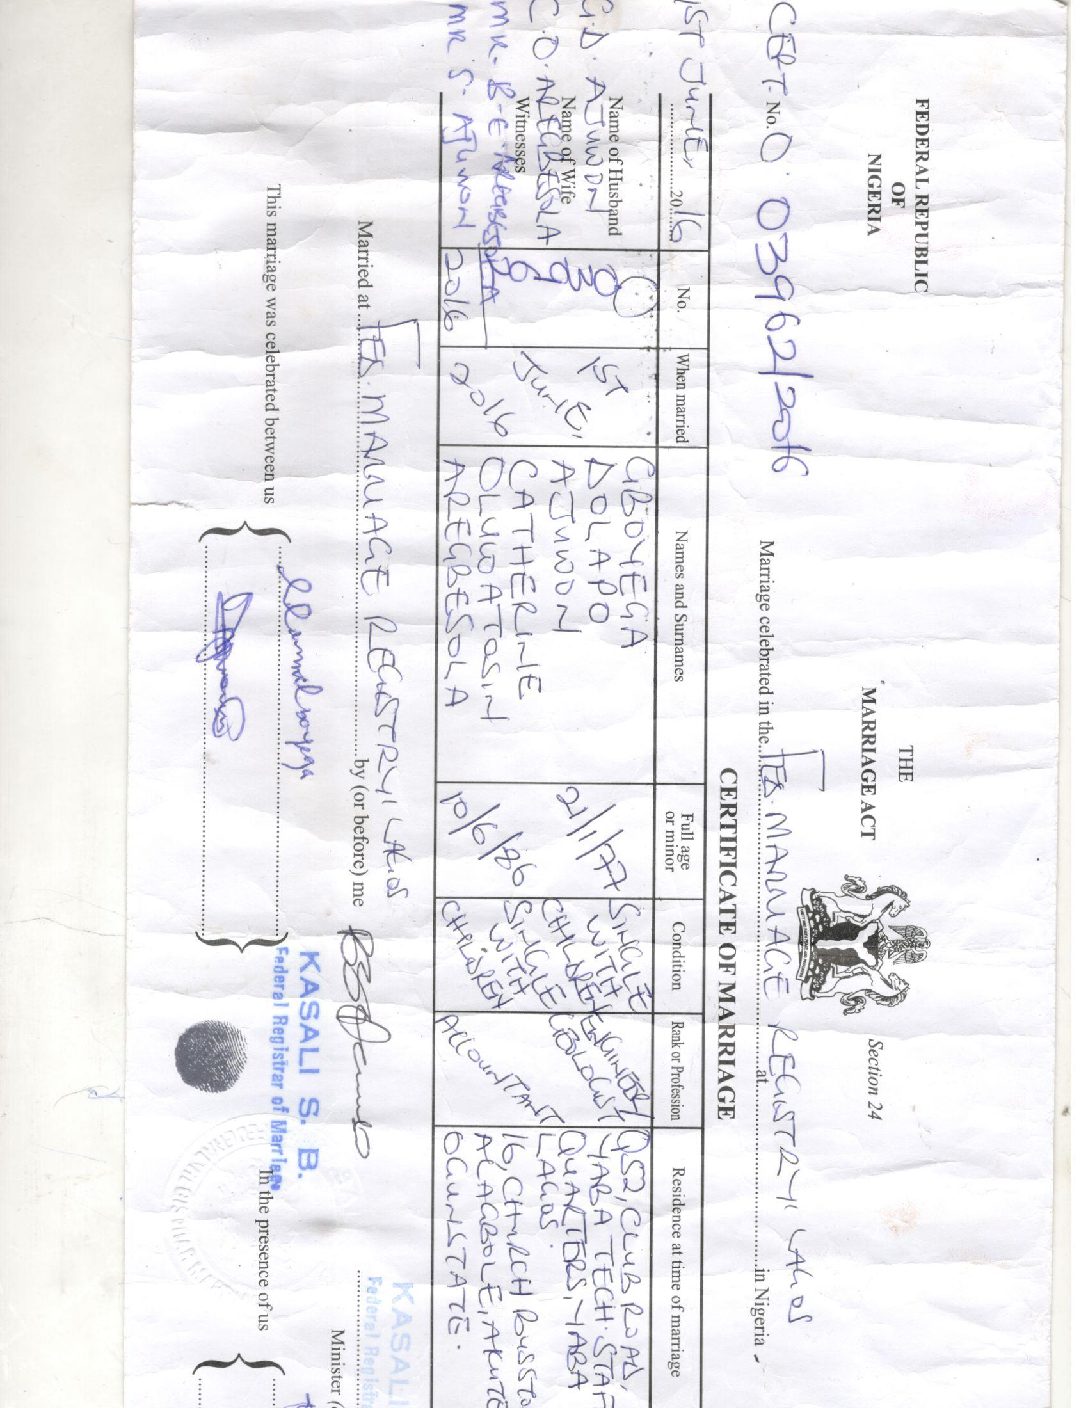 FEDERAL REPUBLIC
OF
NIGERIA
THE
MARRIAGE ACT
Section 24
CERT. No. 0 03962/2016
Marriage celebrated in the FED. MARRIAGE REGISTRY LAGOS at in Nigeria
CERTIFICATE OF MARRIAGE
1ST JUNE, 2016
Name of Husband
G.D. AJUWON
Name of Wife
C.O. AREGBESOLA
Witnesses
MR. B.E. AREGBESOLA
MR. S. AJUWON
No.
2016
When married
1ST
JUNE,
2016
Names and Surnames
GBOYEGA
DOLAPO
AJUWON
CATHERINE
OLUWATOSIN
AREGBESOLA
Full age
or minor
21/1/77
10/6/86
Condition
SINGLE
WITH
CHILDREN
SINGLE
WITH
CHILDREN
Rank or Profession
ENGINEER/
GEOLOGIST
ACCOUNTANT
Residence at time of marriage
Q52, CLUB ROAD,
YABA TECH. STAF
QUARTERS, YABA
LAGOS.
16, CHURCH BUSSTO
ALAGBOLE, AKUTE
OGUN STATE.
Married at FED. MARRIAGE REGISTRY LAGOS by (or before) me
KASALI
Federal Registra
Minister (
This marriage was celebrated between us
KASALI S. B.
Federal Registrar of Marriage
In the presence of us